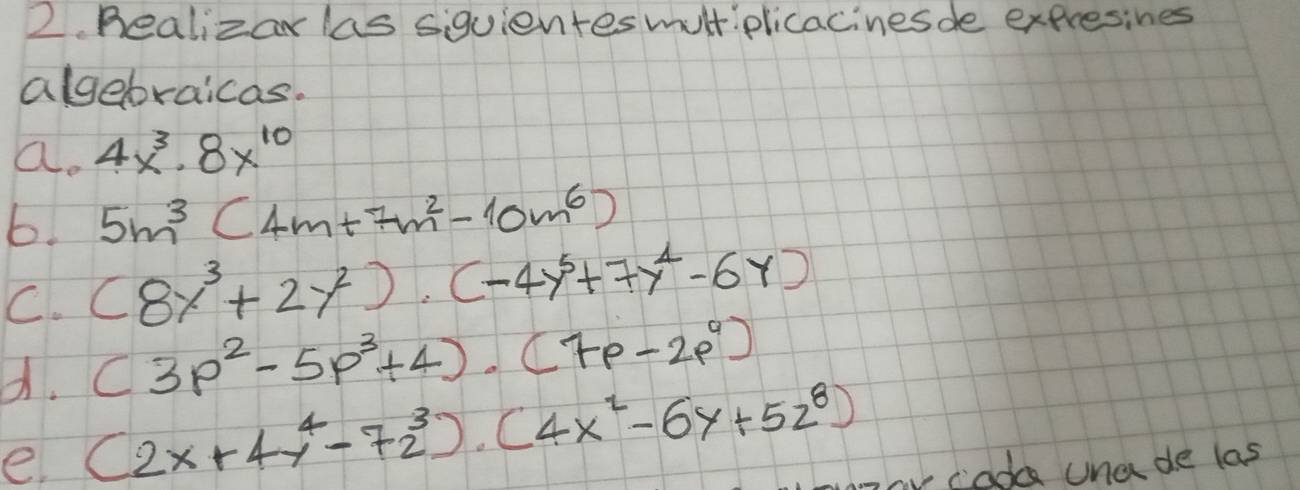 2. Realizar las siguientes multiplicacines de expresines
algebraicas.
a. 4x³ · 8x¹⁰
b. 5m³ (4m + 7m² - 10m⁶)
c. (8y³ + 2y²) · (-4y⁵ + 7y⁴ - 6y)
d. (3p² - 5p³ + 4) · (7p - 2p⁹)
e. (2x + 4y⁴ - 7z³) · (4x² - 6y + 5z⁸)
cada una de las